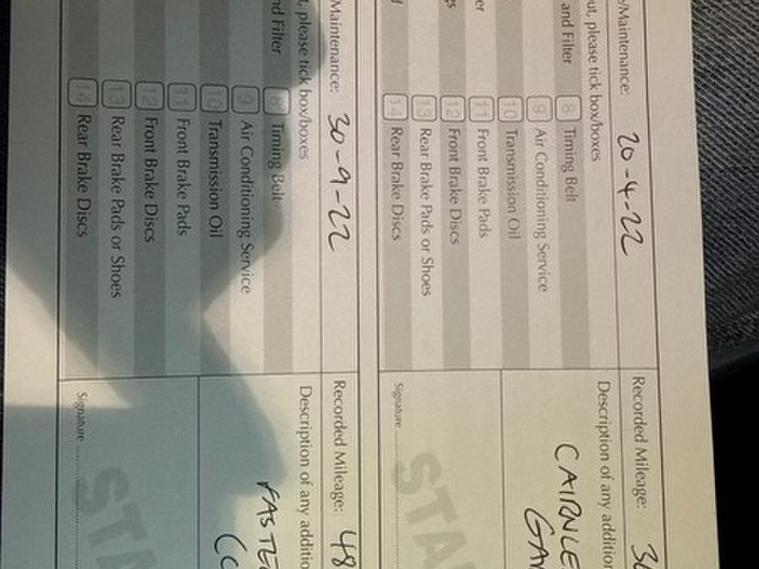 /Maintenance: 20-4-22 Recorded Mileage: 36
ut, please tick box/boxes Description of any addition
and Filter 8 Timing Belt
9 Air Conditioning Service
10 Transmission Oil
er 11 Front Brake Pads
12 Front Brake Discs
13 Rear Brake Pads or Shoes
14 Rear Brake Discs Signature
CAIRNLE
GA
STA
Maintenance: 30-9-22 Recorded Mileage: 48
t, please tick box/boxes Description of any additio
nd Filter 8 Timing Belt
9 Air Conditioning Service
10 Transmission Oil
11 Front Brake Pads
12 Front Brake Discs
13 Rear Brake Pads or Shoes
14 Rear Brake Discs Signature
FASTE
STA